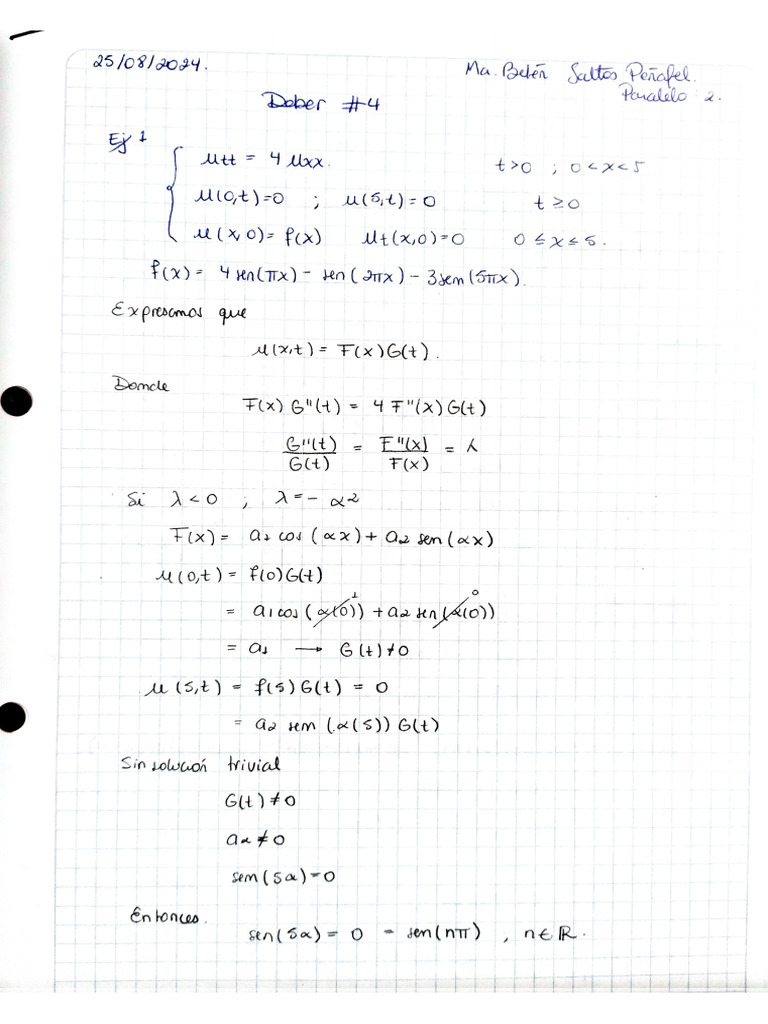 25/08/2024.
Ma. Belén Saltos Peñafel.
Paralelo 2.
Deber #4
Ej 1
utt = 4 uxx. t>0 ; 0<x<5
u(0,t)=0 ; u(5,t)=0 t≥0
u(x,0)= f(x) ut(x,0)=0 0≤x≤5.
f(x)= 4 sen(πx)- sen(2πx)-3sen(5πx).
Expresamos que
u(x,t)= F(x)G(t).
Donde
F(x) G''(t) = 4 F''(x) G(t)
G''(t)/G(t) = F''(x)/F(x) = λ
Si λ<0 ; λ=-α2
F(x)= a1 cos(αx)+ a2 sen(αx)
u(0,t)= f(0)G(t)
= a1cos(α(0))1 + a2 sen(α(0))0
= a1 → G(t)≠0
u(5,t) = f(5)G(t) = 0
= a2 sen (α(5)) G(t)
Sin solución trivial
G(t)≠0
a2≠0
sen(5α)=0
Entonces.
sen(5α)= 0 = sen(nπ) , n∈ℝ.